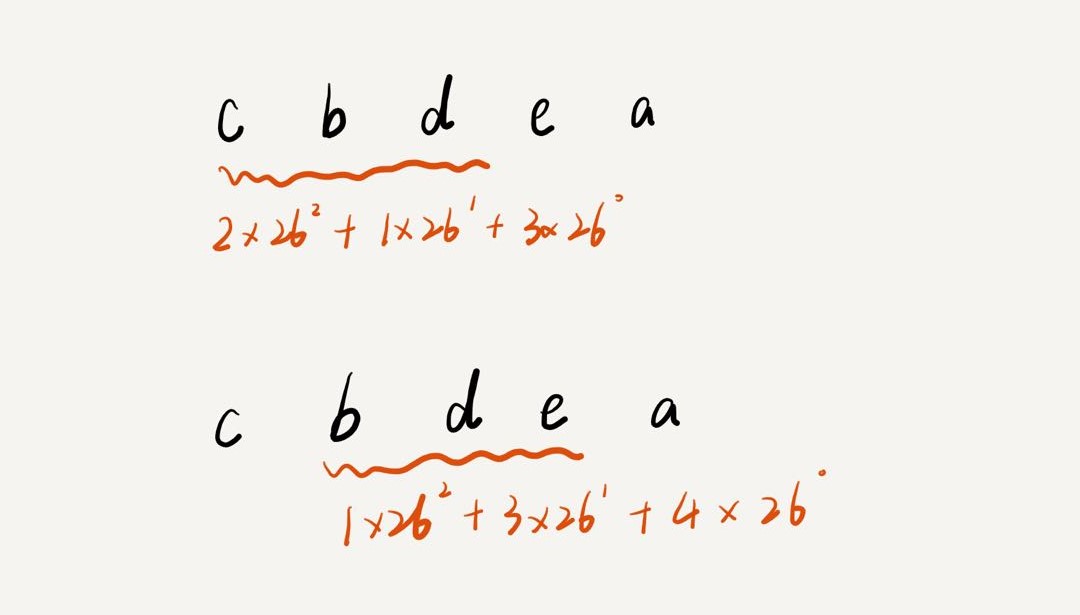 c b d e a
2×26² + 1×26¹ + 3×26⁰
c b d e a
1×26² + 3×26¹ + 4×26⁰